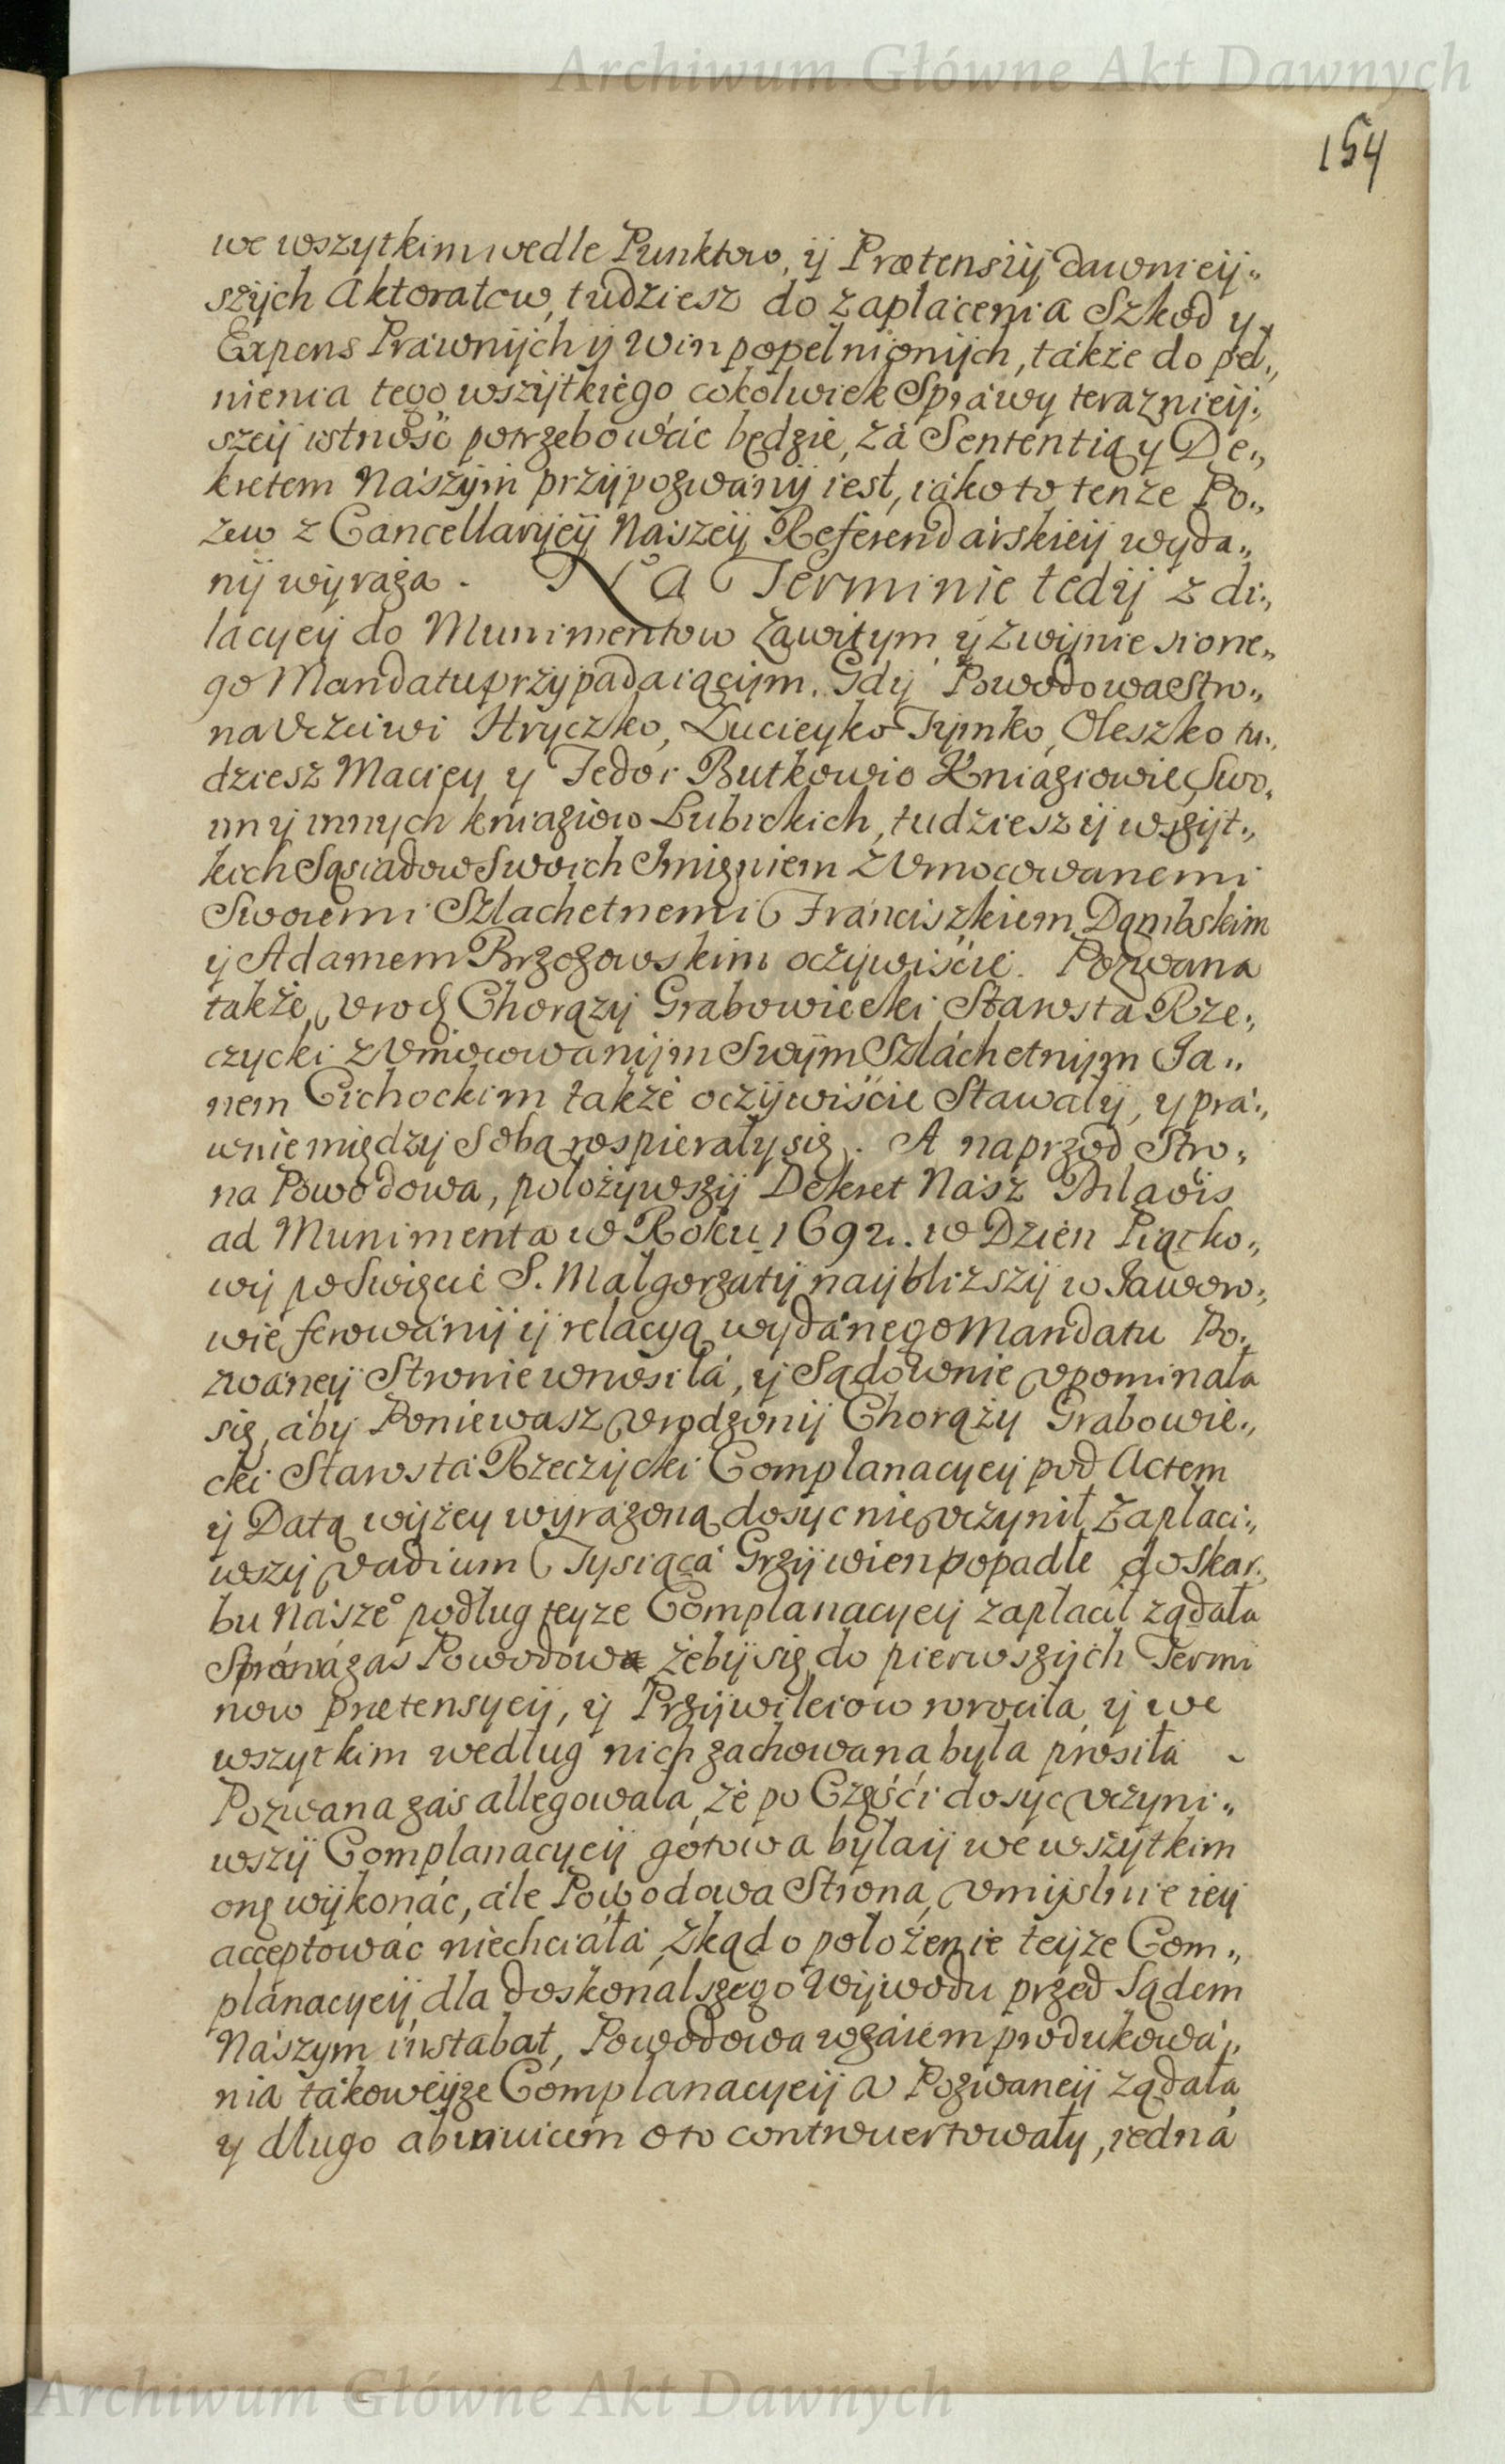 Archiwum Główne Akt Dawnych
154
we wszytkim wedle Punktow, ÿ Prætensÿÿ dawnieÿ„
szÿch Aktoratow, tudziesz do zapłacenia Szkod y
Expens Prawnÿch ÿ Win popełnionÿch, także do peł„
nienia tego wszÿtkiego cokolwiek Sprawy teraznieÿ„
szeÿ istność potrzebować będzie, za Sententią y De„
kretem Naszÿm przÿpozwanÿ iest, iako to tenże Po„
zew z Cancellarÿeÿ Naszeÿ Referendarskieÿ wyda„
nÿ wÿraża. Na Terminie tedÿ z di„
lacyeÿ do Munimentow zawitym ÿ zwÿnie sione„
go Mandatu przÿpadaiącÿm. Gdÿ Powodowa Stro„
na Vczciwi Hryczko, Lucieyko Tymko, Oleszko tu„
dziesz Maciey y Fedor Butkowie Kniaziowie Swo„
im ÿ innych kniaziow Lubickich, tudziesz ÿ wszÿt„
kich Sąsiadow Swoich Imięniem z Vmocowanemi
Swoiemi Szlachetnemi Franciszkiem Dąmbskim
ÿ Adamem Brzozowskim oczÿwiście. Pozwana
także Vrodz Chorązÿ Grabowiecki Starosta Rze„
czycki z Vmocowanÿm Swÿm Szlachetnÿm Ja„
nem Cichockim także oczÿwiście Stawałÿ, y pra„
wnie międzÿ Sobą rospierały się. A naprzod Stro„
na Powodowa, położywszÿ Dekret Nasz Dilaõis
ad Munimenta w Roku 1692. w Dzień Piątko„
wÿ po Swięcie S. Małgorzatÿ naÿbliższÿ w Jaworo„
wie ferowanÿ ÿ relacyą wydanego Mandatu Po„
zwaneÿ Stronie wnosiła, ÿ Sądownie vpominała
się, abÿ Poniewasz Vrodzonÿ Chorąży Grabowie„
cki Starosta Rzeczÿcki Complanacyeÿ pod Actem
ÿ Datą wÿżey wyrażoną dosyc nie vczynił, Zapłaci„
wszÿ vadium Tysiąca Grzÿwien popadłe do Skar„
bu Nasze° podług teyże Complanacyeÿ zapłacił żądała
zas Powodowa żebÿ się do pierwszÿch Termi
now prætensyeÿ, ÿ Przÿwileiow wrociła, ÿ we
wszytkim według nich zachowana była prosiła
Pozwana zaś allegowała, że po Częśći dosyc vczyni„
wszÿ Complanacyeÿ gotowa była ÿ we wszÿtkim
onę wÿkonać, ale Powodowa Strona, vmÿslnie ieÿ
acceptować niechciała, Zkąd o położenie teÿże Com„
planacyeÿ dla doskonalszego Wÿwodu przed Sądem
Naszym instabat, Powodowa wzaiem produkowa„
nia takoweÿże Complanacyeÿ a Pozwaneÿ żądała
y długo abinuicem o to controuertowały, iedna
Archiwum Główne Akt Dawnych